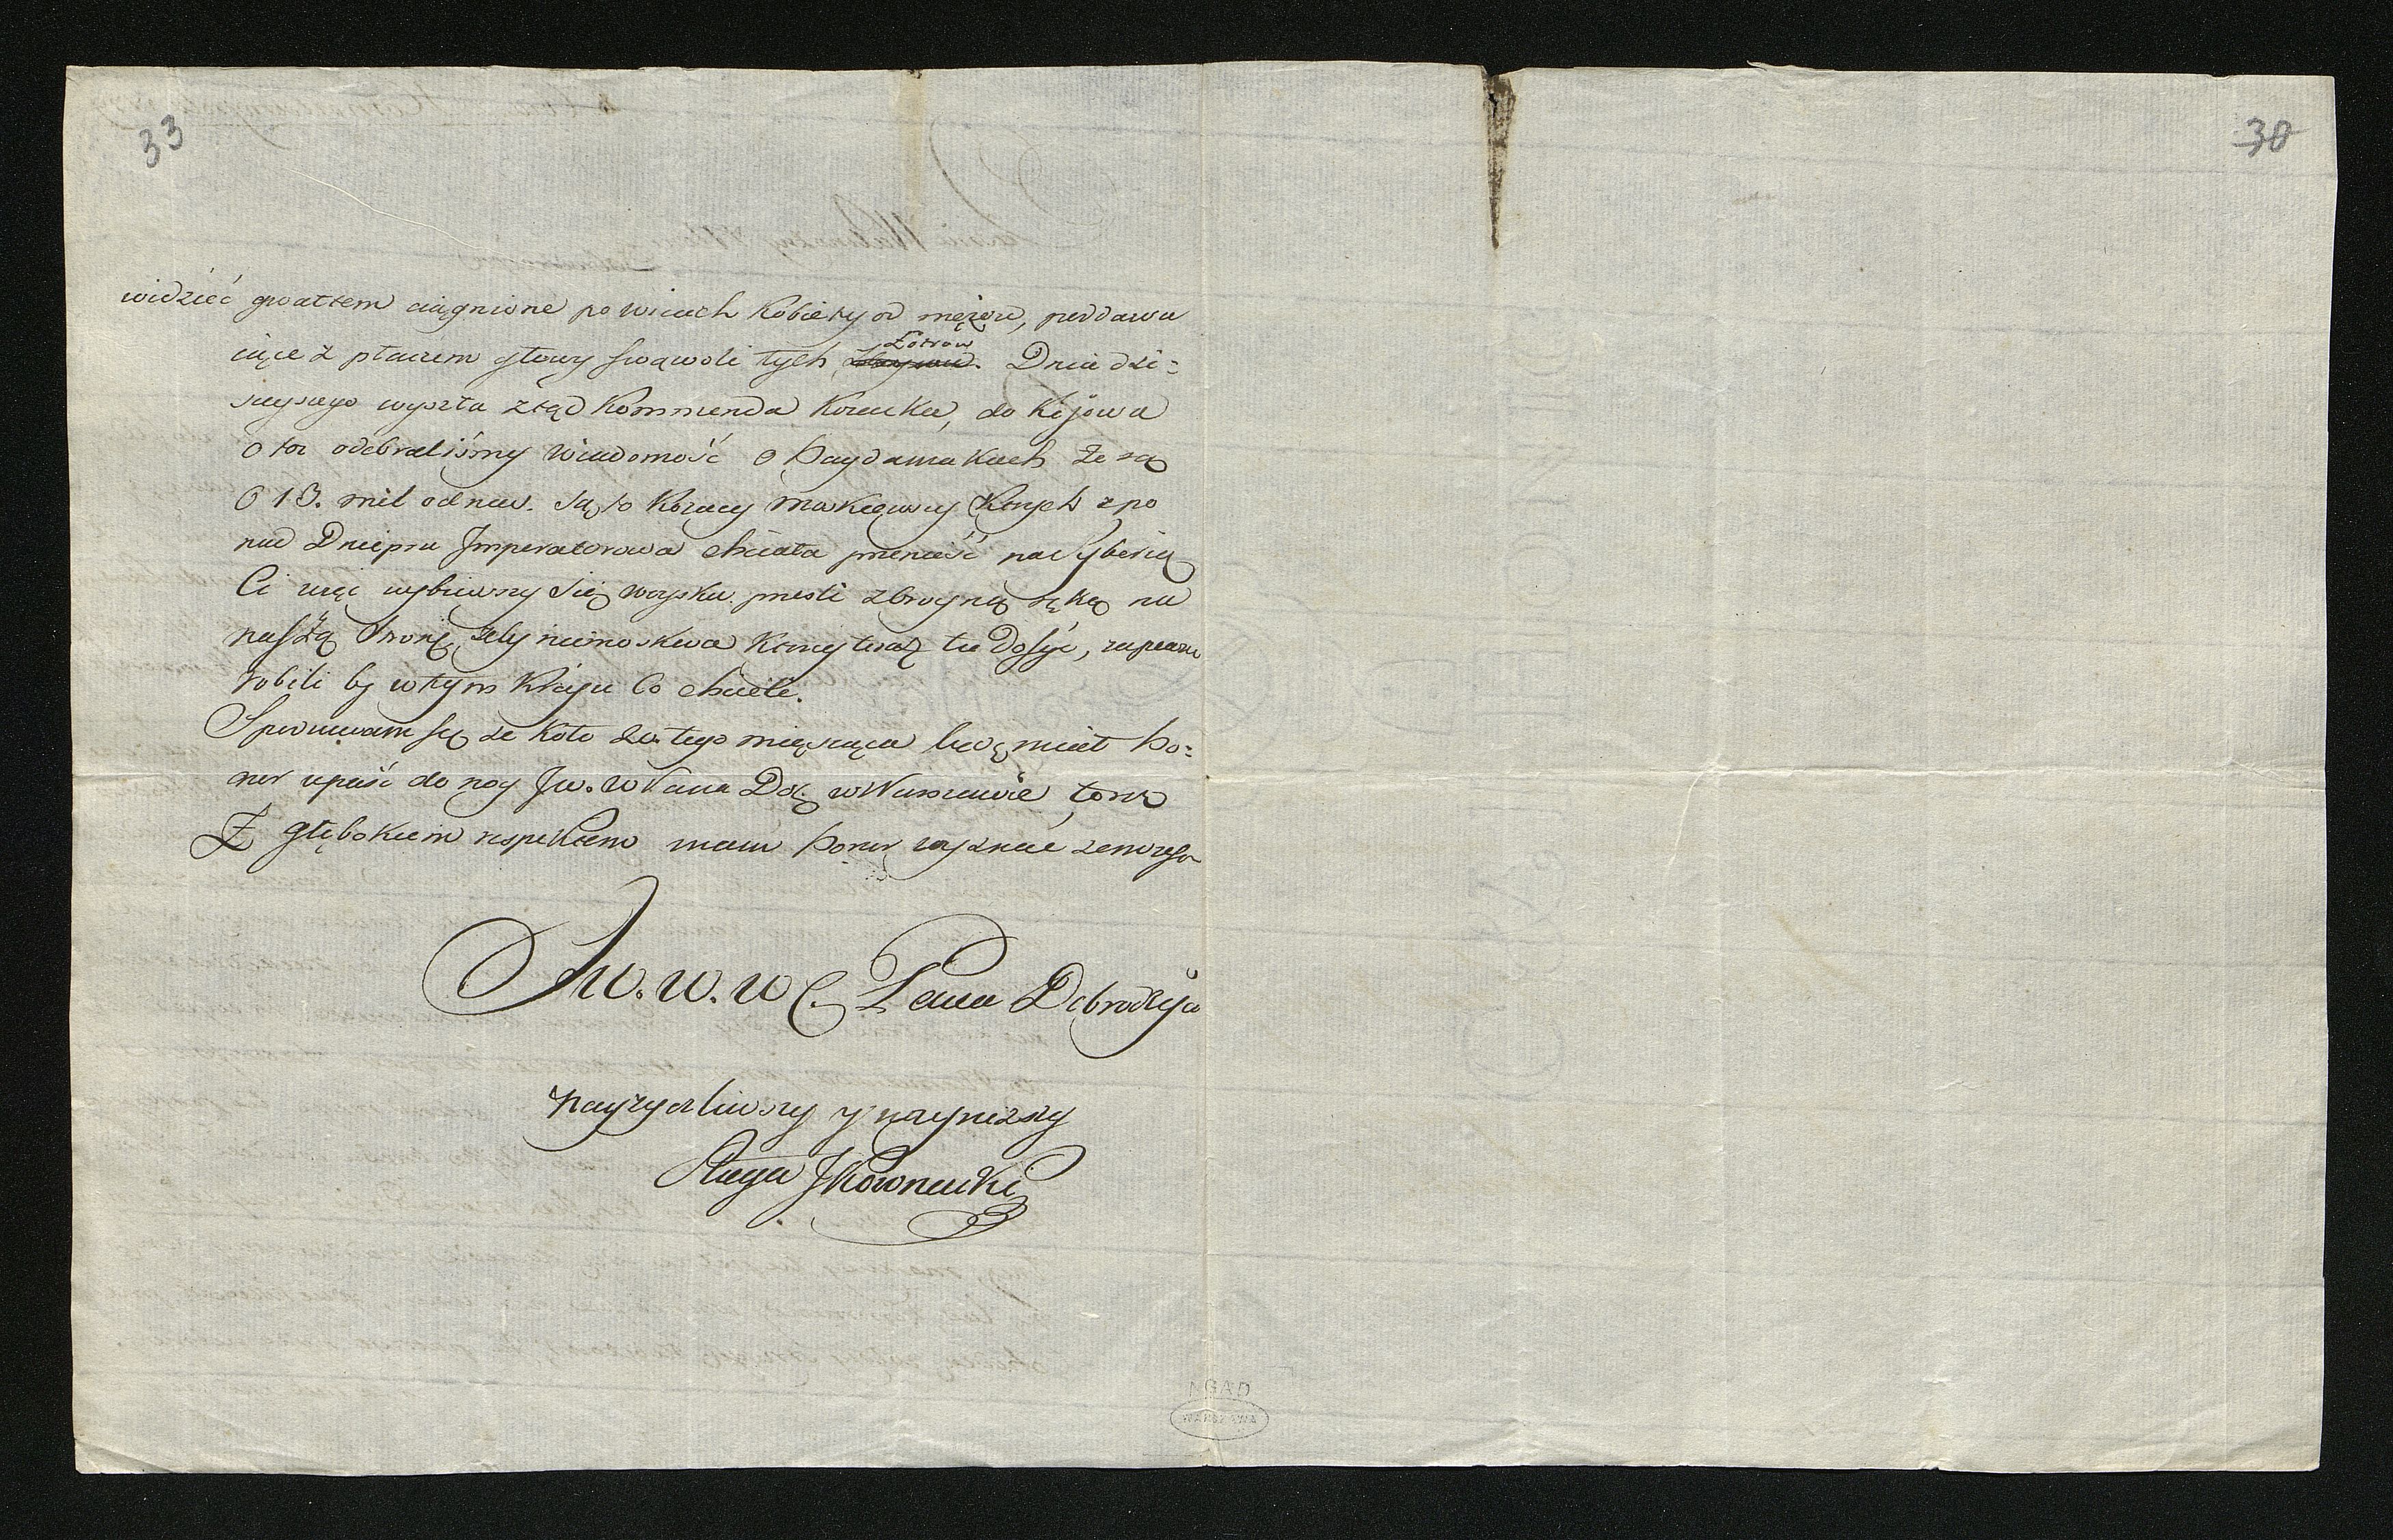 33
38
widzieć gwałtem ciągnione po wsiach kobiety od mężow, poddawa
iące z płaczem głowy swąwoli tych Łotrow. Dnia dzi=
sieyszego wyszła ztąd kommenda kozacka, do Kijowa
otoz odebraliśmy wiadomość o haydamakach że są
o 13. mil od nas. Są to kozacy których z po
nad Dniepru Imperatorowa chciała przenieść na Syberią
Ci więc wybiwszy się woysku przeszli zbroyną ręką na
naszżą stronę, żeby nie moskwa ktorey teraz tu dosyć, zapewne
robili by w tym kraju co chcieli.
Spodziewam się że koło 20. tego miesiąca będę miał ho=
nor upaść do nog Jw. W Pana Do. w Warszawie, teraz
Z głębokiem respektem mam honor wyznać żem iest
Jw. W. W Pana Dobrodzieja
nayżyczliwszy y nayniższy
Sługa JKownacki
AGAD
WARSZAWA